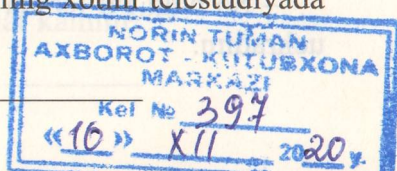 ning xotin telestudiyada
NORIN TUMAN
AXBOROT - KUTUBXONA
MARKAZI
Kel № 397
«10» XII 2020 y.